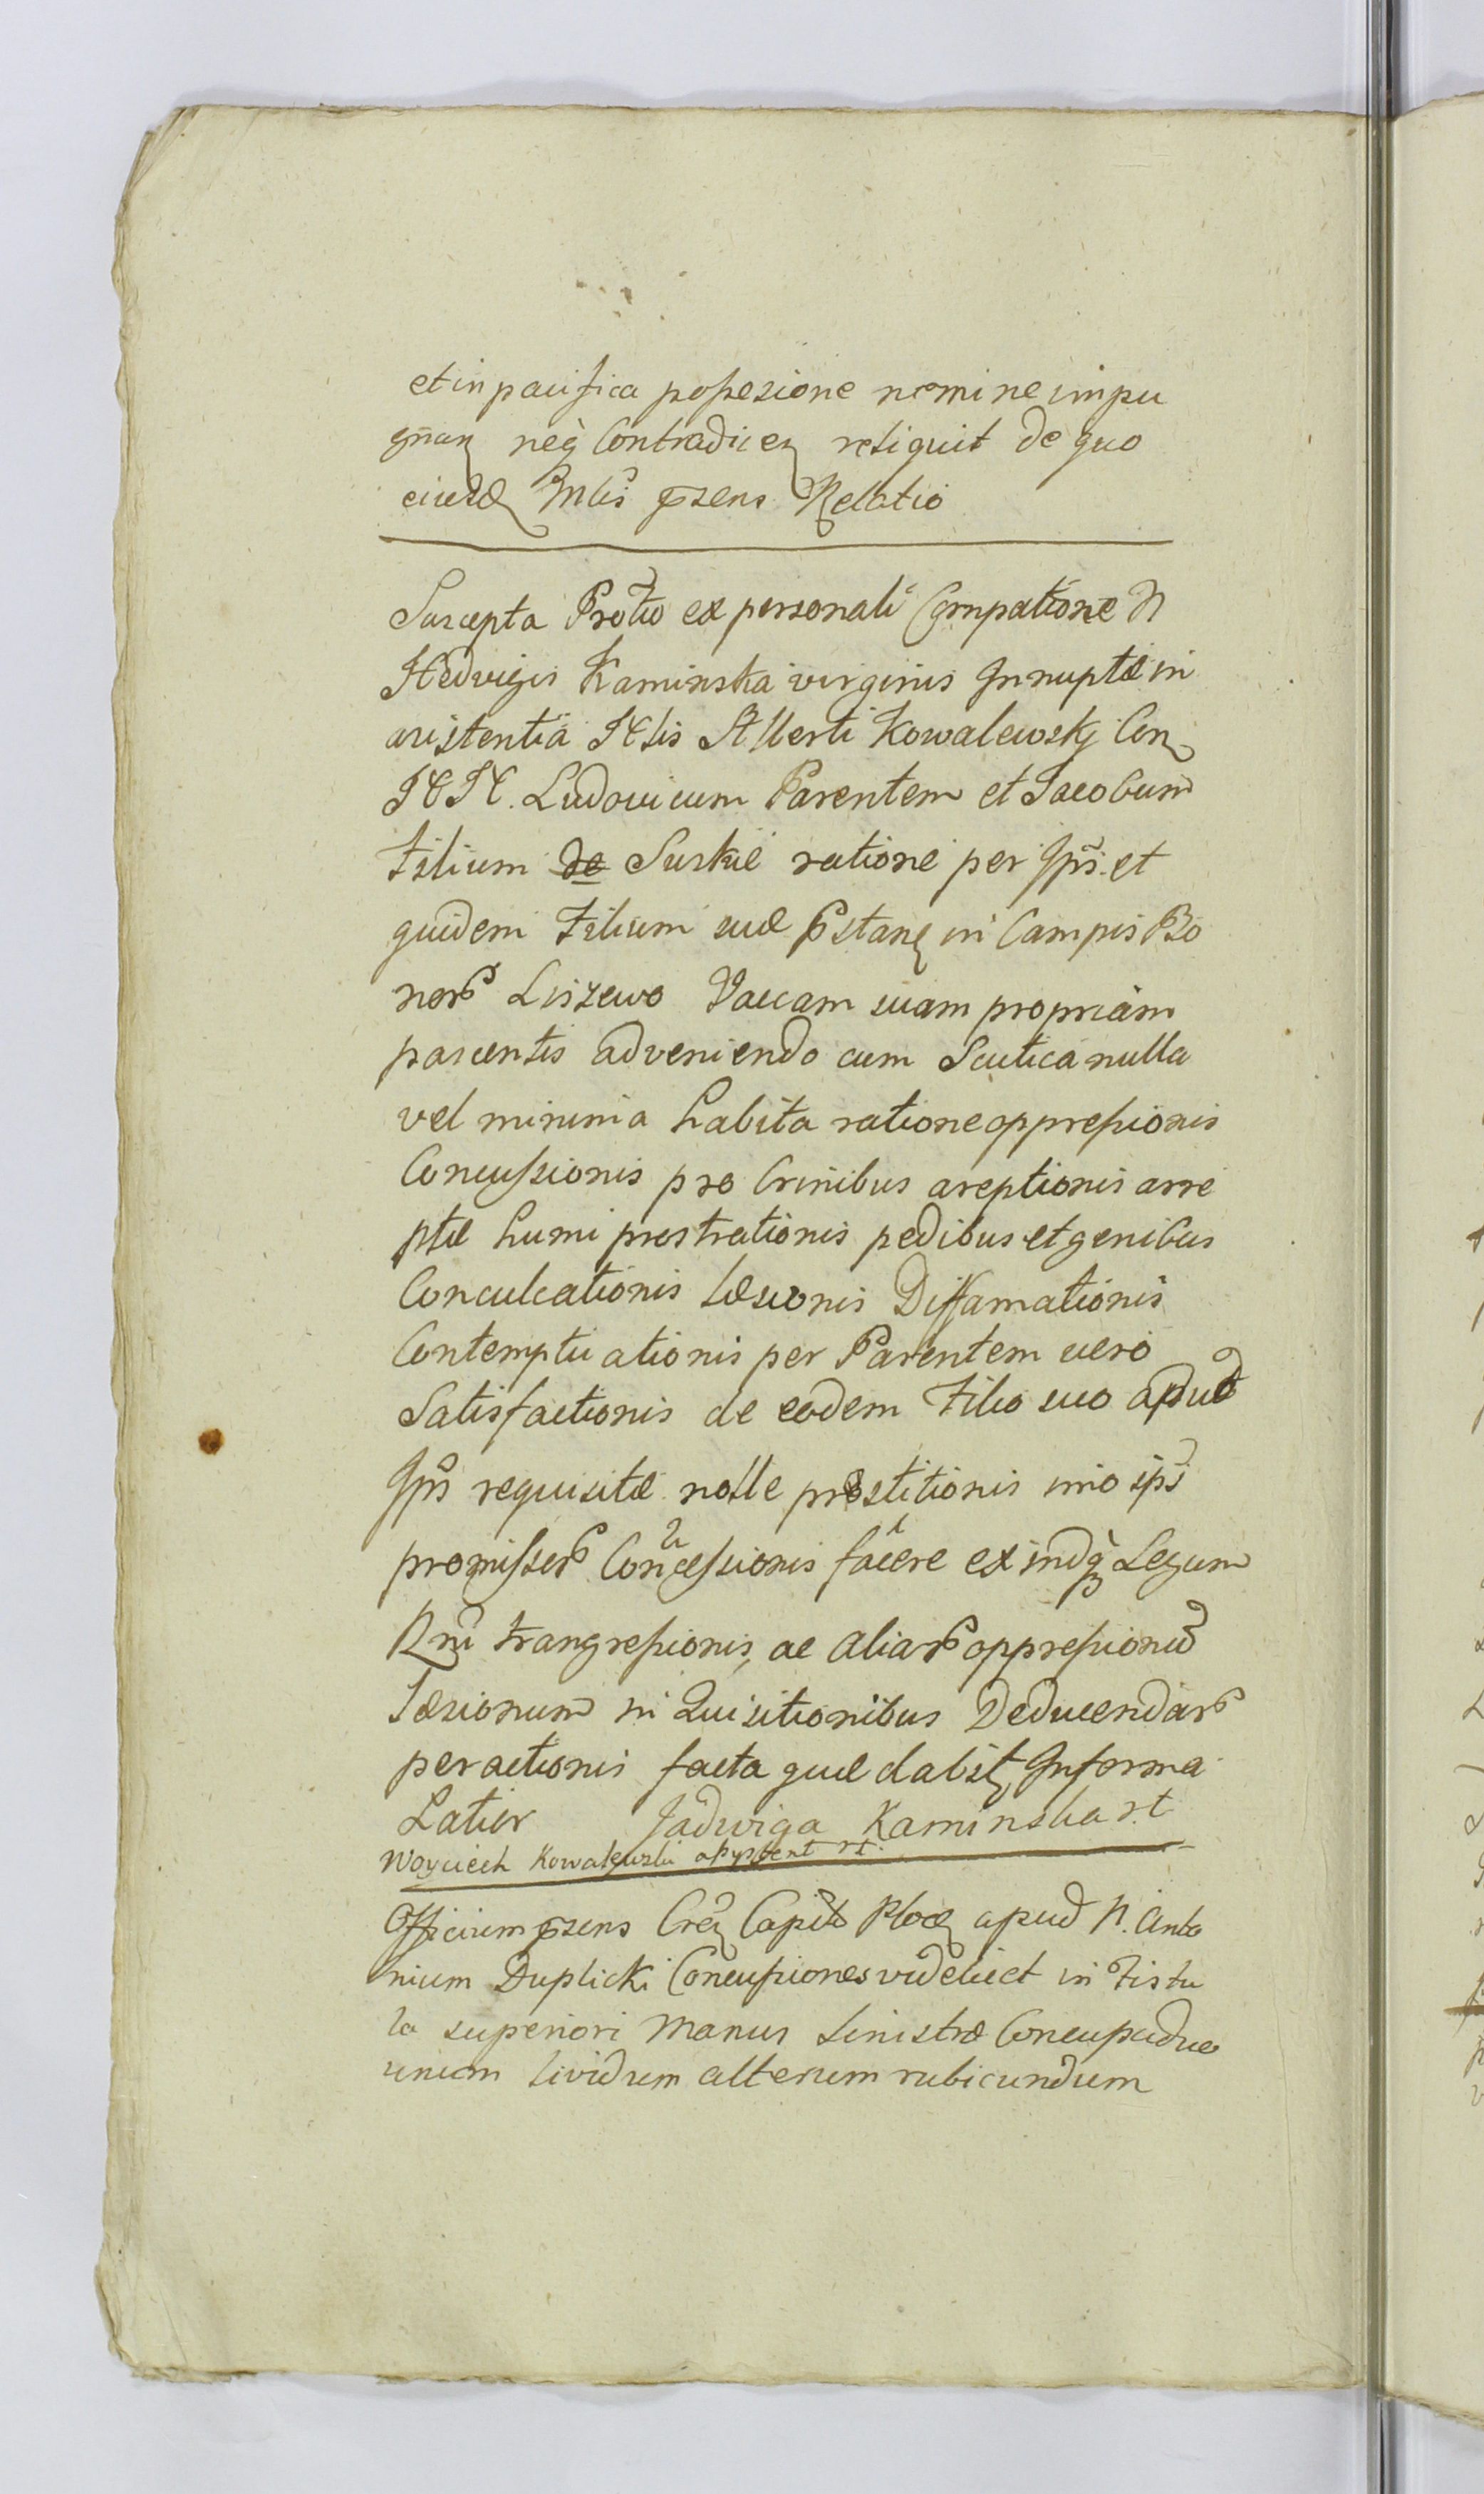 et in pacifica possesione nemine impu
gnan neq Contradicen reliquit de quo
eiusd Mlis pzens Relatio
Suscepta Proto ex personali Compatione N
Hedvigis Kaminska virginis Innuptæ in
asistentia Nlis Alberti Kowalewsky Con
NN. Ludovicum Parentem et Jacobum
Filium de Suskie ratione per Ips et
quidem Filium suæ pstane in Campis Bo
nor Liszewo Vaccam suam propriam
pascentis adveniendo cum Scutica nulla
vel minima habita ratione oppressionis
Concussionis pro Crinibus areptionis arre
ptæ humi prostrationis pedibus et genibus
Conculcationis læsionis Diffamationis
Contemptuationis per Parentem vero
Satisfactionis de eodem Filio suo apud
Ips requisitæ nolle præstitionis imo ips
promisser Concessionis facere exindq Legum
Rni trangressionis, ac aliar oppressionu
læsionum in Quisitionibus Deducendar
peractionis facta quæ dabit Informa
Latier Jadwiga Kaminska rt
Woyciech Kowalewski assystent rt.
Officium pzens Cren Capit Ploc apud N. Anto
nium Duplicki Concussiones videlicet in Fistu
la superiori Manus sinistræ Concussu duo
unum lividum alterum rubicundum